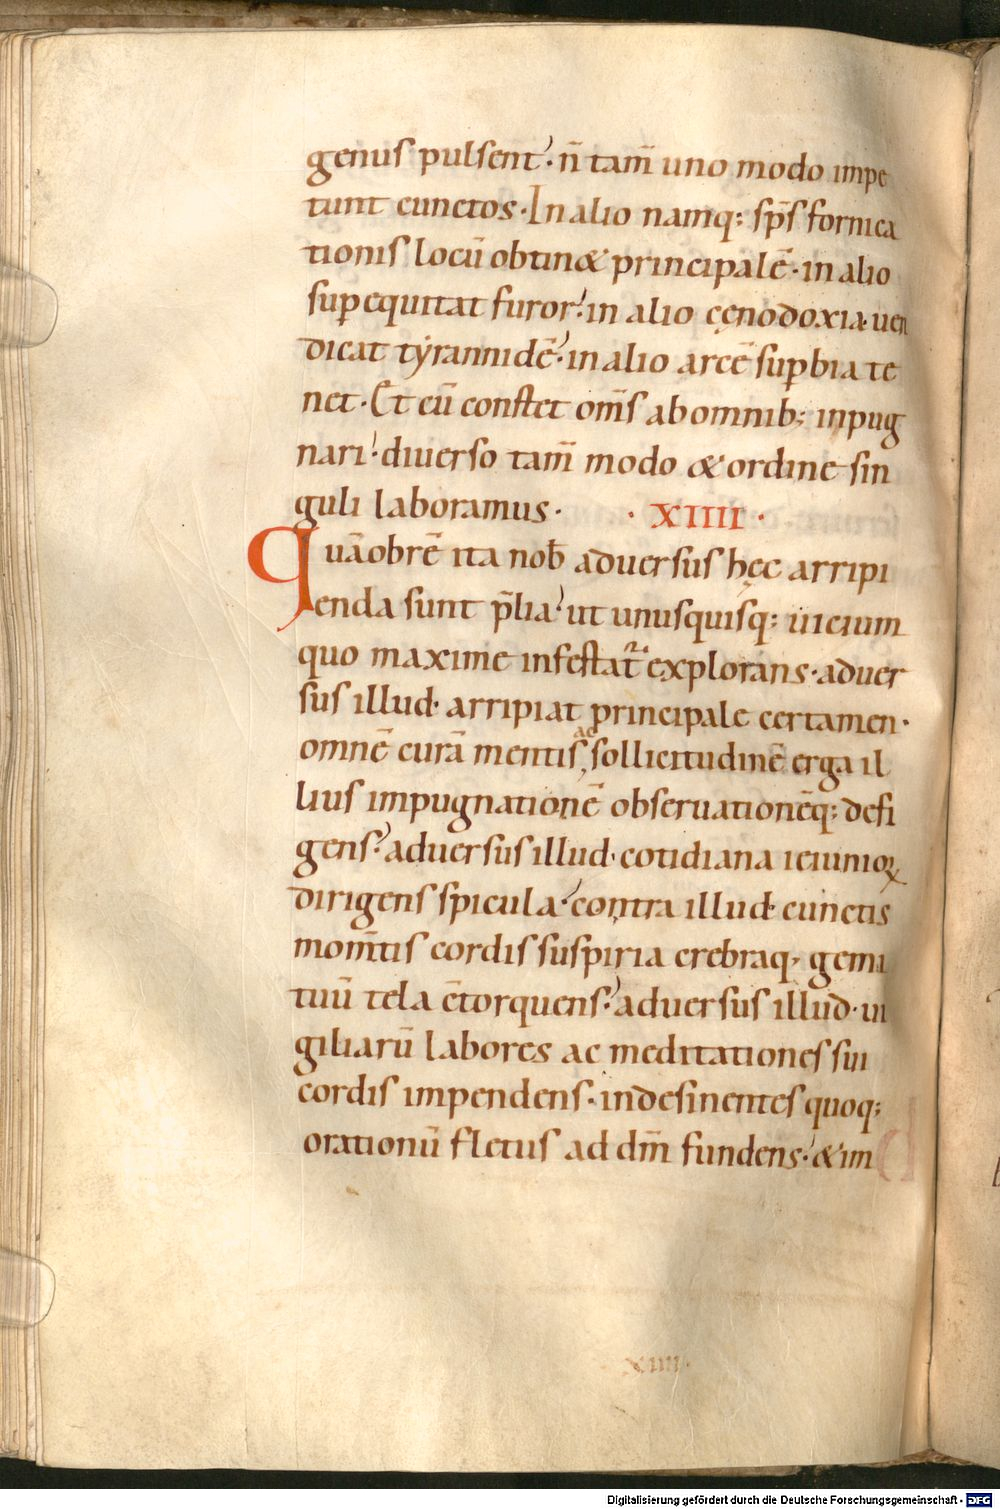 genus pulsent · n̄ tam̄ uno modo impe
tunt cunctos · In alio namq; sp̄s fornica
tionis locū obtinet principalē · in alio
sup̱equitat furor · in alio cęnodoxia uen
dicat tẏrannidē · in alio arcē sup̱bia te
net · Et cū constet om̄s ab omnib; inpug
nari · diuerso tam̄ modo & ordine sin
guli laboramus · · XIIII ·
Quāobrē ita nob̄ aduersus hęc arripi
enda sunt p̄lia · ut unusquisq; uicium
quo maxime infestat᷑ explorans · aduer
sus illud · arripiat principale certamen ·
omnē curā mentis ac sollicitudinē erga il
lius impugnationē obseruationēq; defi
gens · aduersus illud · cotidiana ieiunioꝝ
dirigens spicula · contra illud cunctis
mom̄tis cordis suspiria crebraq; gemi
tuū tela c̄torquens · aduersus illud · ui
giliarū labores ac meditationes sui
cordis impendens · indesinentes quoq;
orationū fletus ad dm̄ fundens · & im
XIIII ·
Digitalisierung gefördert durch die Deutsche Forschungsgemeinschaft - DFG